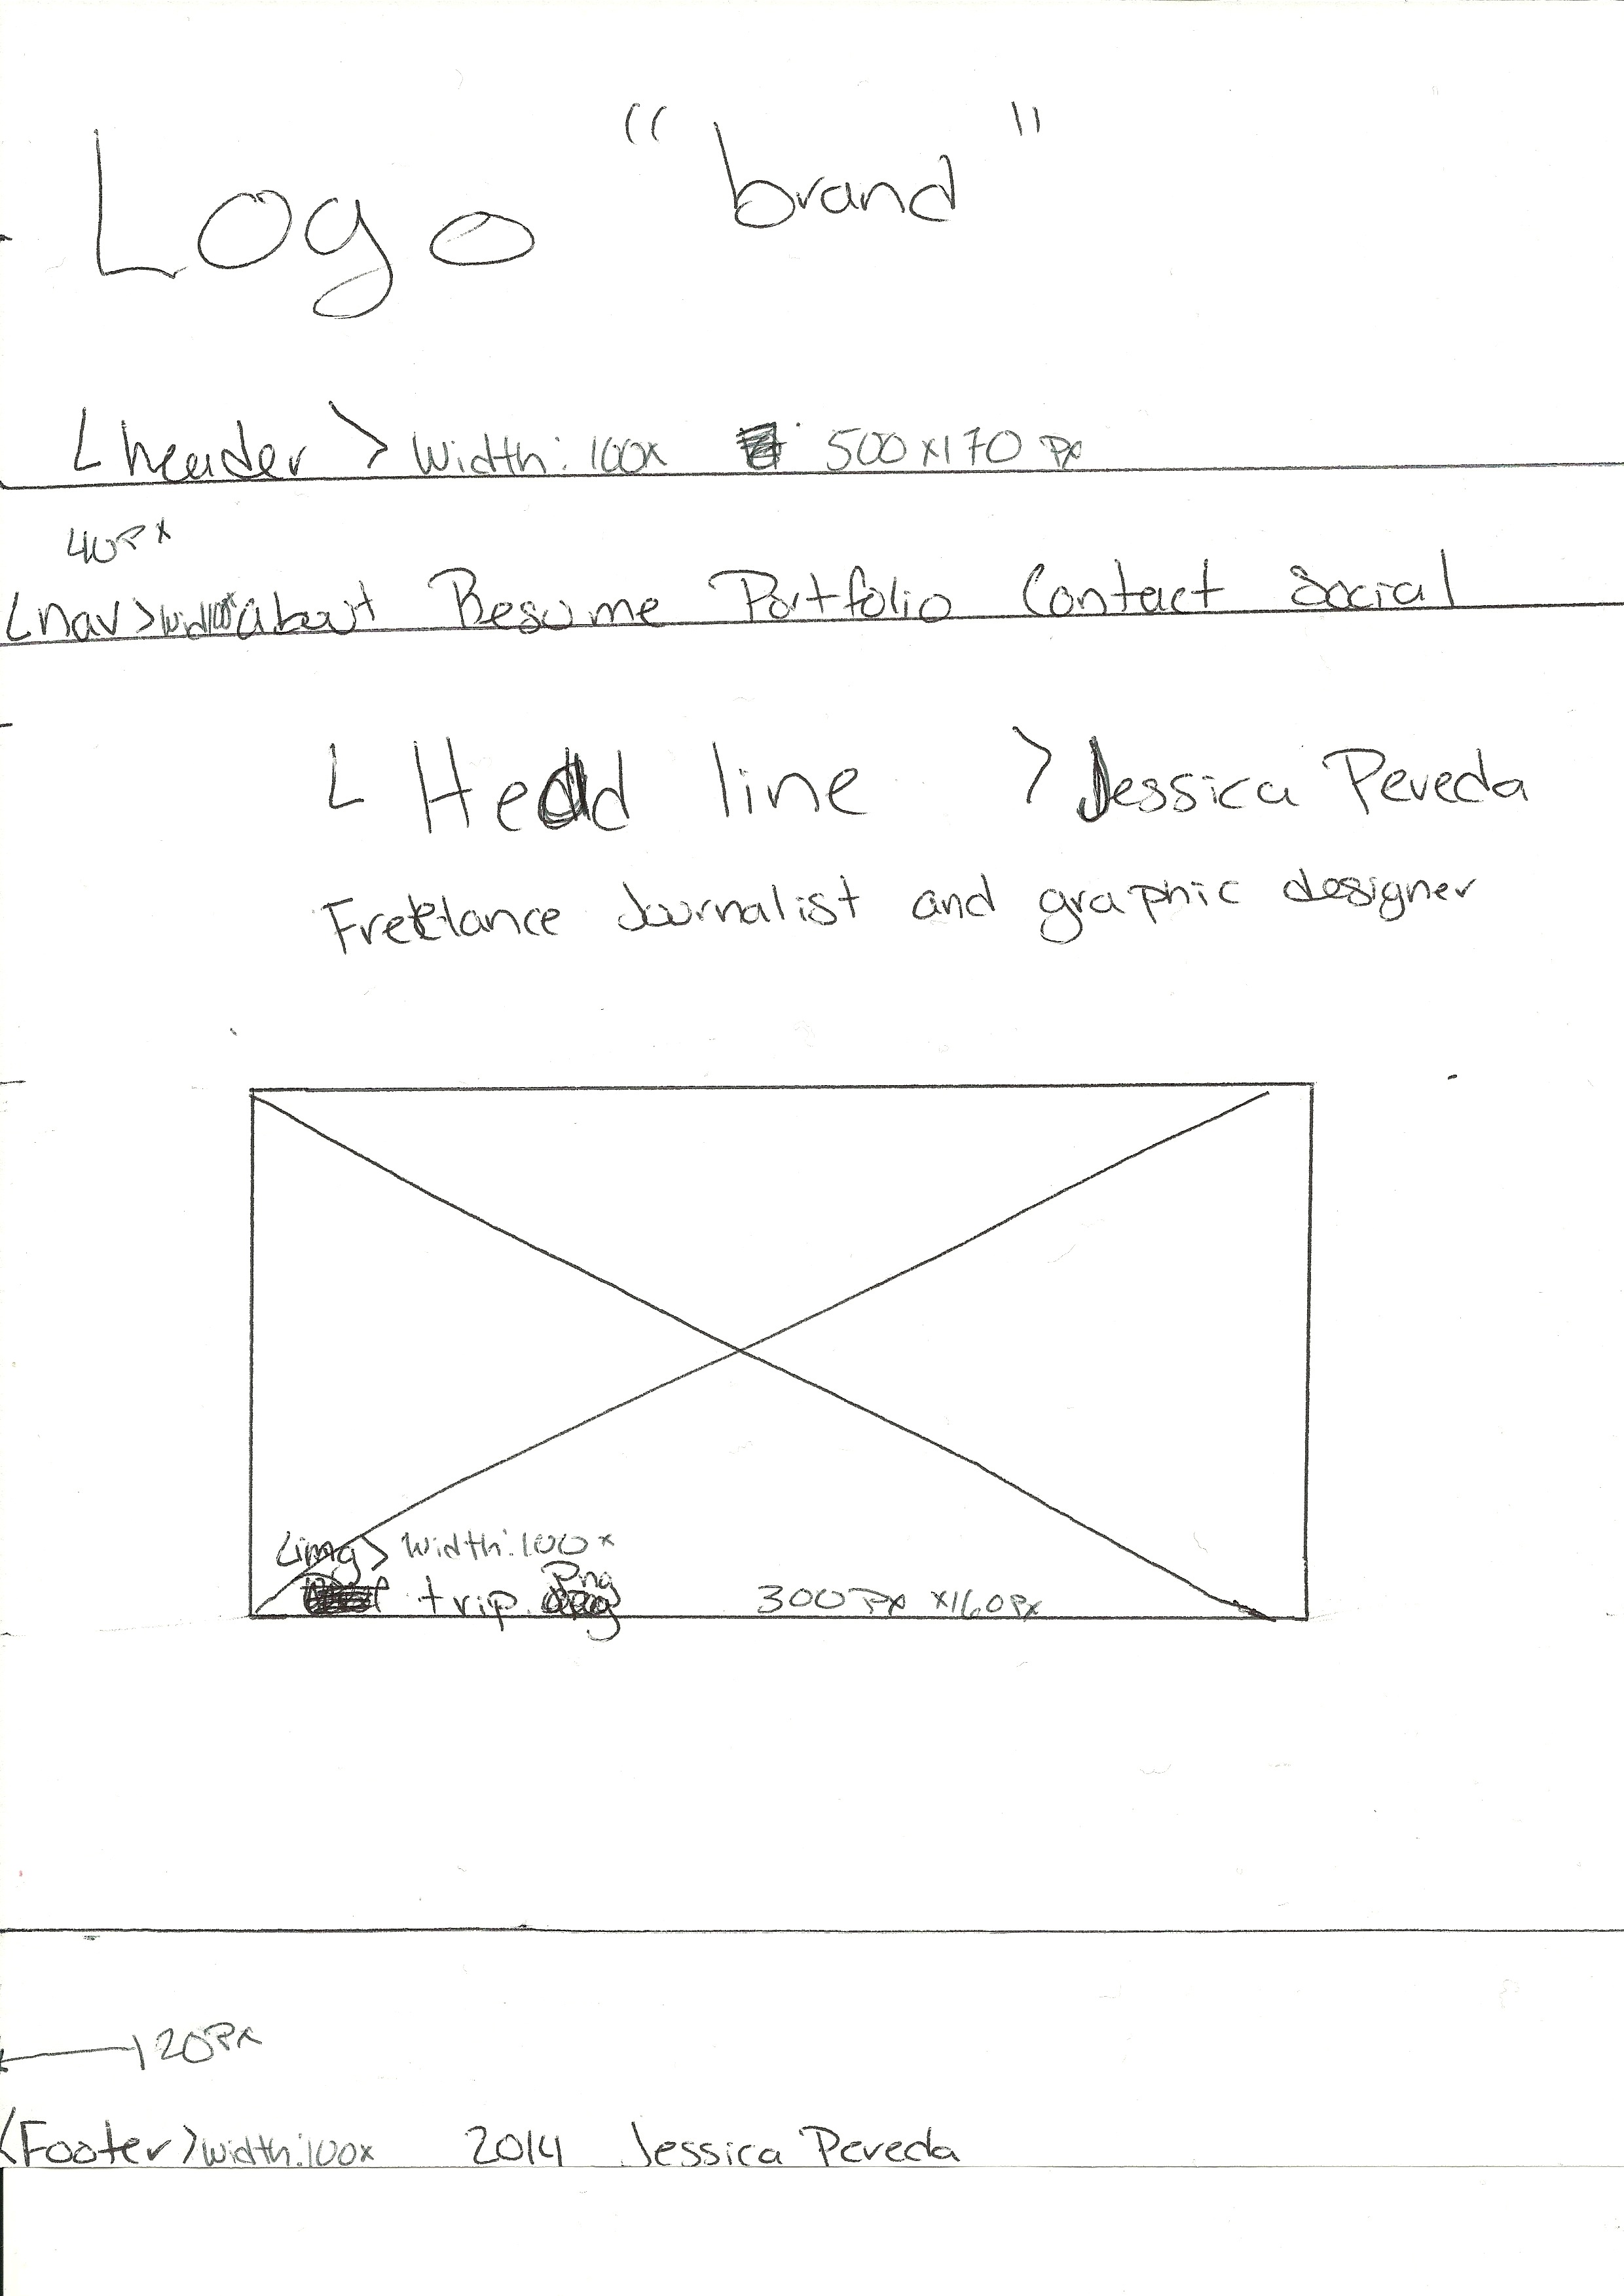 Logo "brand"
<header> width: 100% 500x170 px
40px
<nav> about Resume Portfolio Contact Social
<Head line> Jessica Pereda
Freelance Journalist and graphic designer
<img> width: 100%
trip. png 300px x160px
120px
<Footer> width: 100% 2014 Jessica Pereda